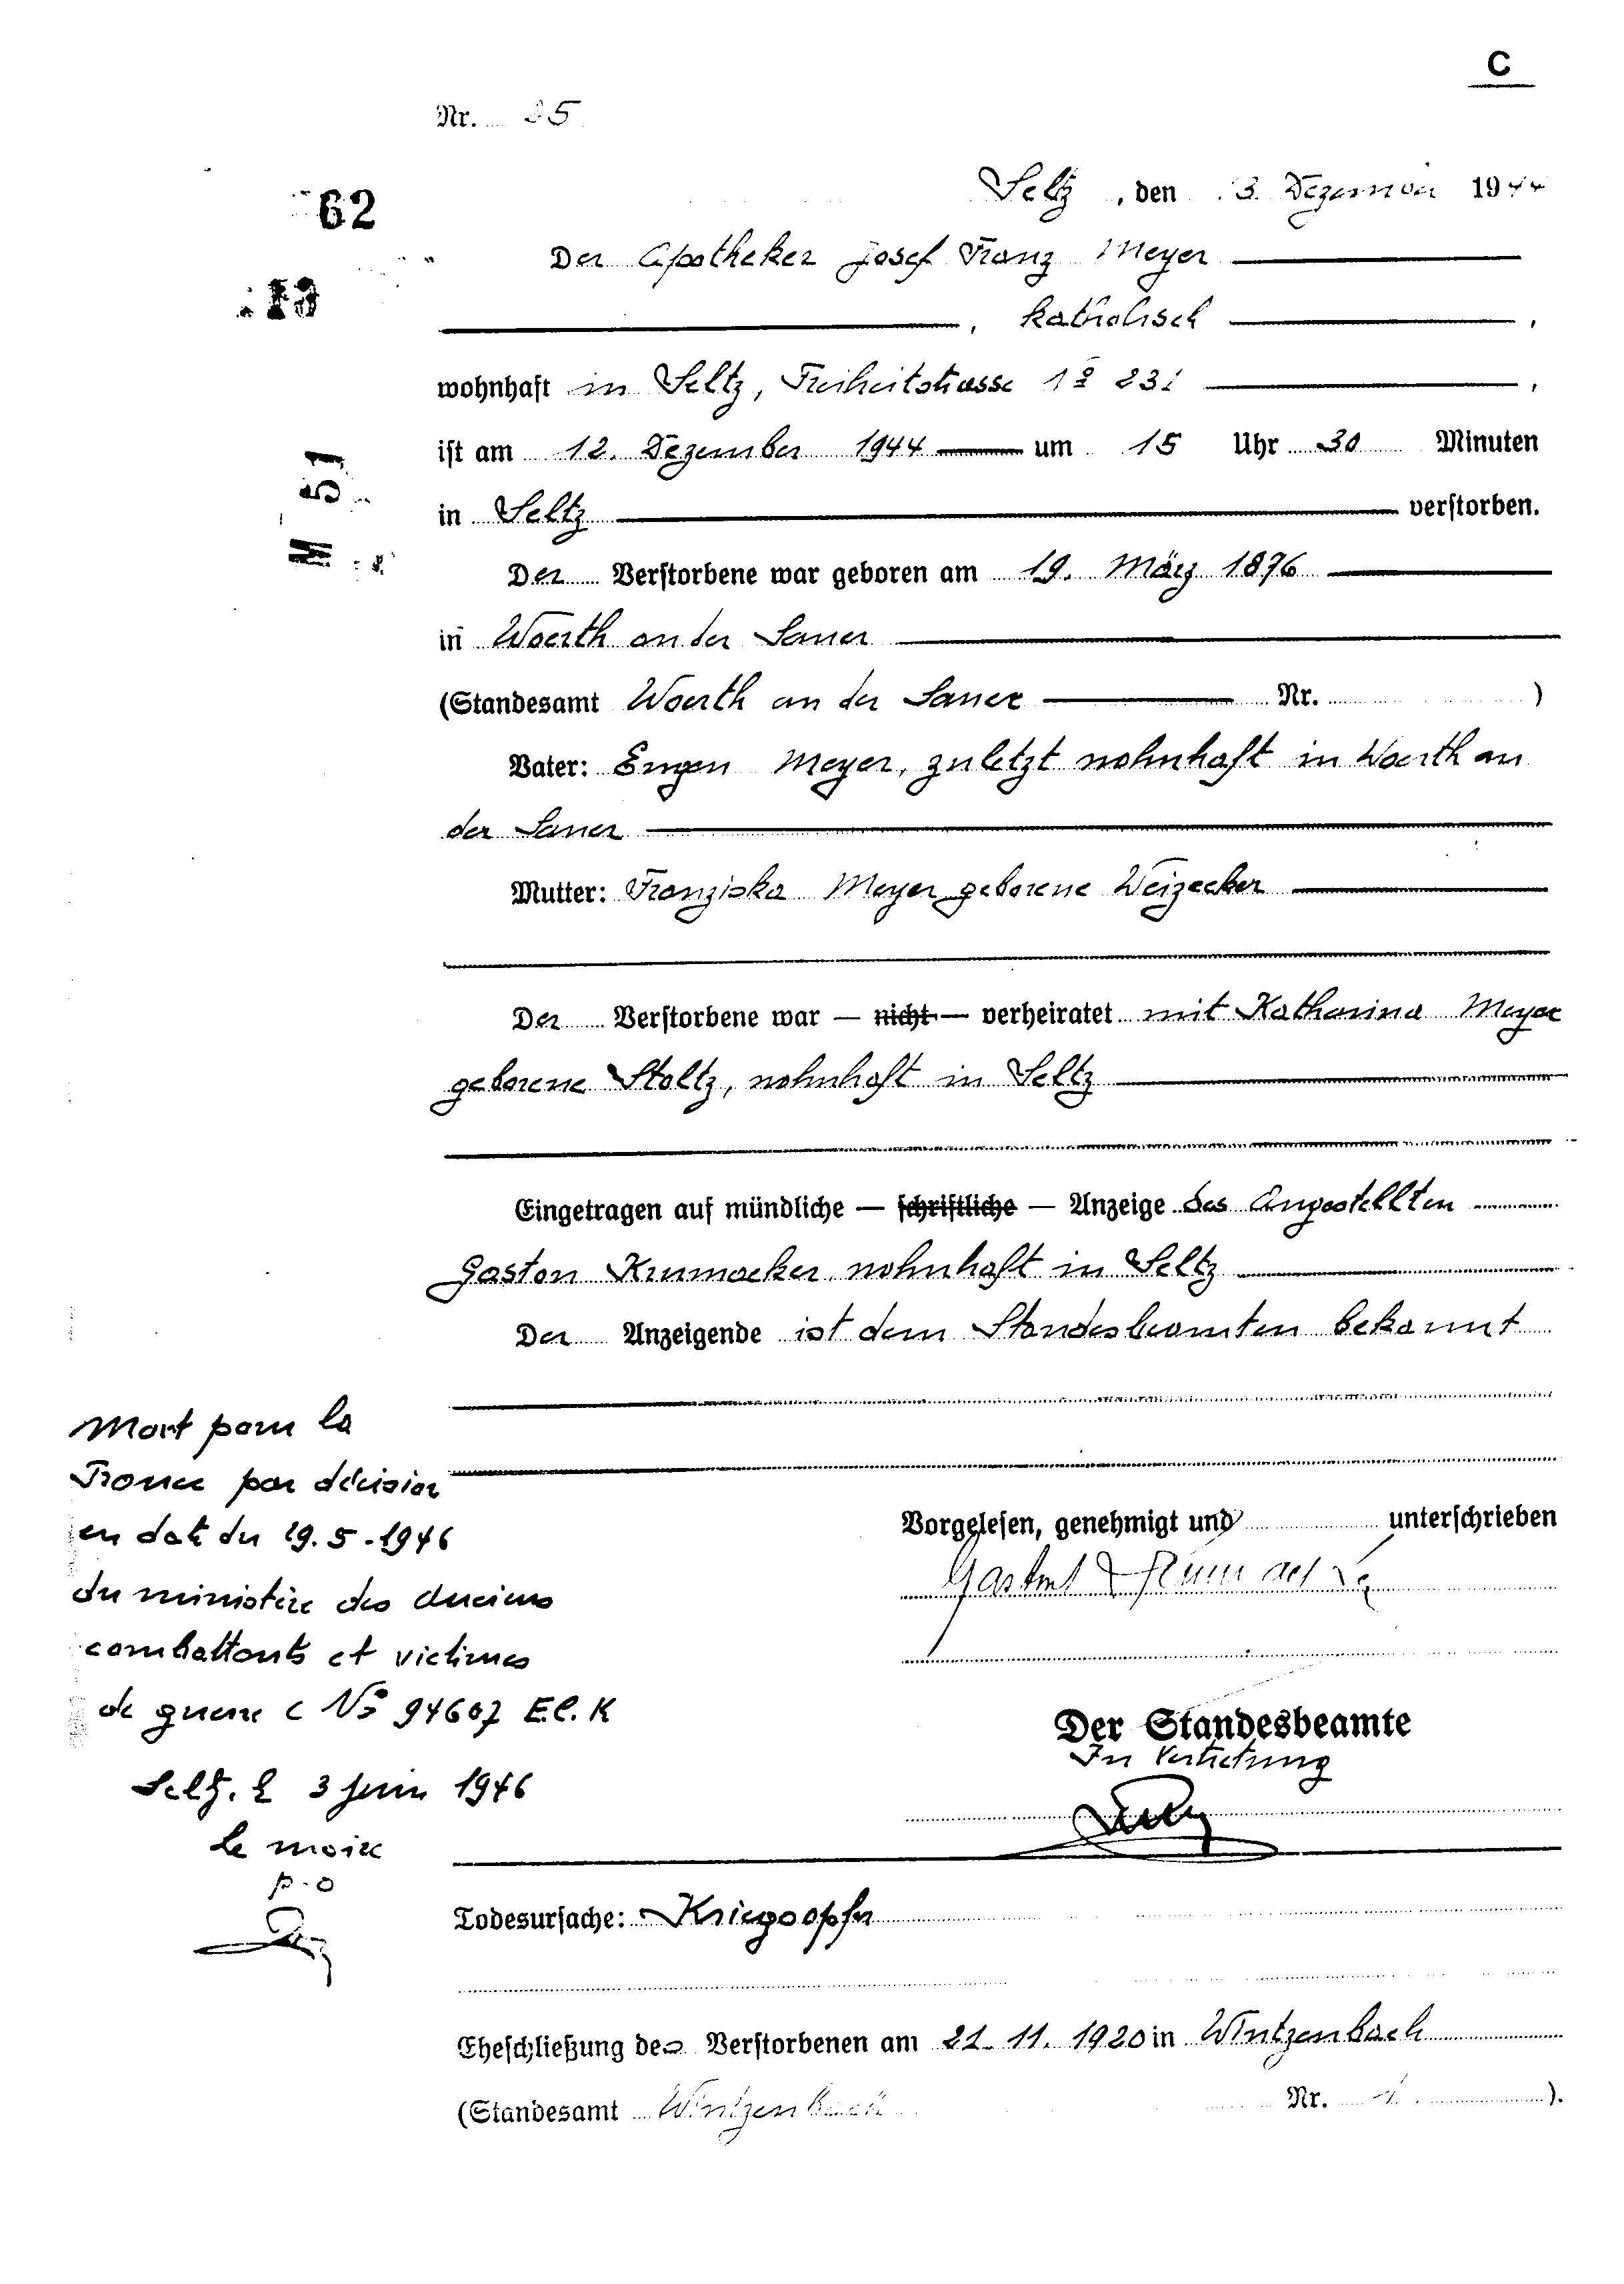 C
Nr. 25
Seltz, den 13. Dezember 1944
62
Der Apotheker Josef Franz Meyer
, katholisch ,
wohnhaft in Seltz, Freiheitstrasse 231 ,
ist am 12. Dezember 1944 um 15 Uhr 30 Minuten
in Seltz verstorben.
Der Verstorbene war geboren am 19. März 1876
in Woerth an der Sauer
(Standesamt Woerth an der Sauer Nr. )
Vater: Eugen Meyer, zuletzt wohnhaft in Woerth an
der Sauer
Mutter: Franziska Meyer geborene Weizecker
Der Verstorbene war — nicht — verheiratet mit Katharina Meyer
geborene Stoltz, wohnhaft in Seltz
Eingetragen auf mündliche — schriftliche — Anzeige des Angestellten
Gaston Krumacker wohnhaft in Seltz
Der Anzeigende ist dem Standesbeamten bekannt
Mort pour la
France par décision
en date du 29.5.1946
du ministère des anciens
combattants et victimes
de guerre C No 94607 E.C.K
Seltz, le 3 juin 1946
Le maire
p.o
Vorgelesen, genehmigt und unterschrieben
Der Standesbeamte
In Vertretung
Todesursache: Kriegsopfer
Eheschließung des Verstorbenen am 21. 11. 1920 in Wintzenbach
(Standesamt Wintzenbach Nr. ).